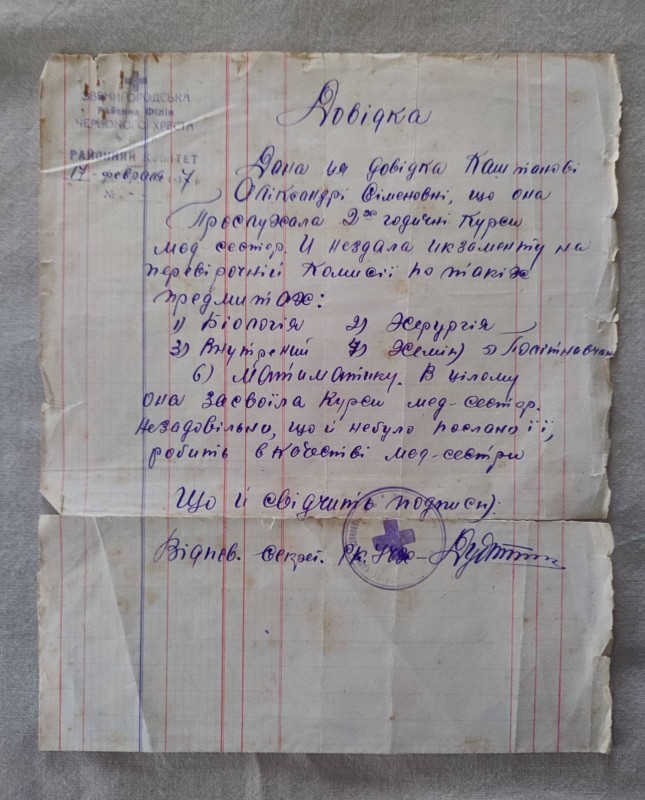 ЗВЕНИГОРОДСЬКА
Районна Філія
ЧЕРВОНОГО ХРЕСТА
РАЙОННИЙ КОМІТЕТ
17 - февраля 37 р.
№ - -
Довідка
Дана ця довідка Каштанові
Олександрі Сіменовні, що она
Прослухала 2ох годичні Курси
мед сестер. И нездала икзаменту на
перевірочній Комисії по такіх
предмитах:
1) Біологія 2) Херургія
3) Внутрений 4) Хемія) 5) Політнавчан
6) Матиматику. В цілому
она засвоїла Курси мед-сестер.
Незадовільно, що й небуло послано її,
робить в качестві мед-сестри
Що й свідчить подписи).
Відпов. секрет.